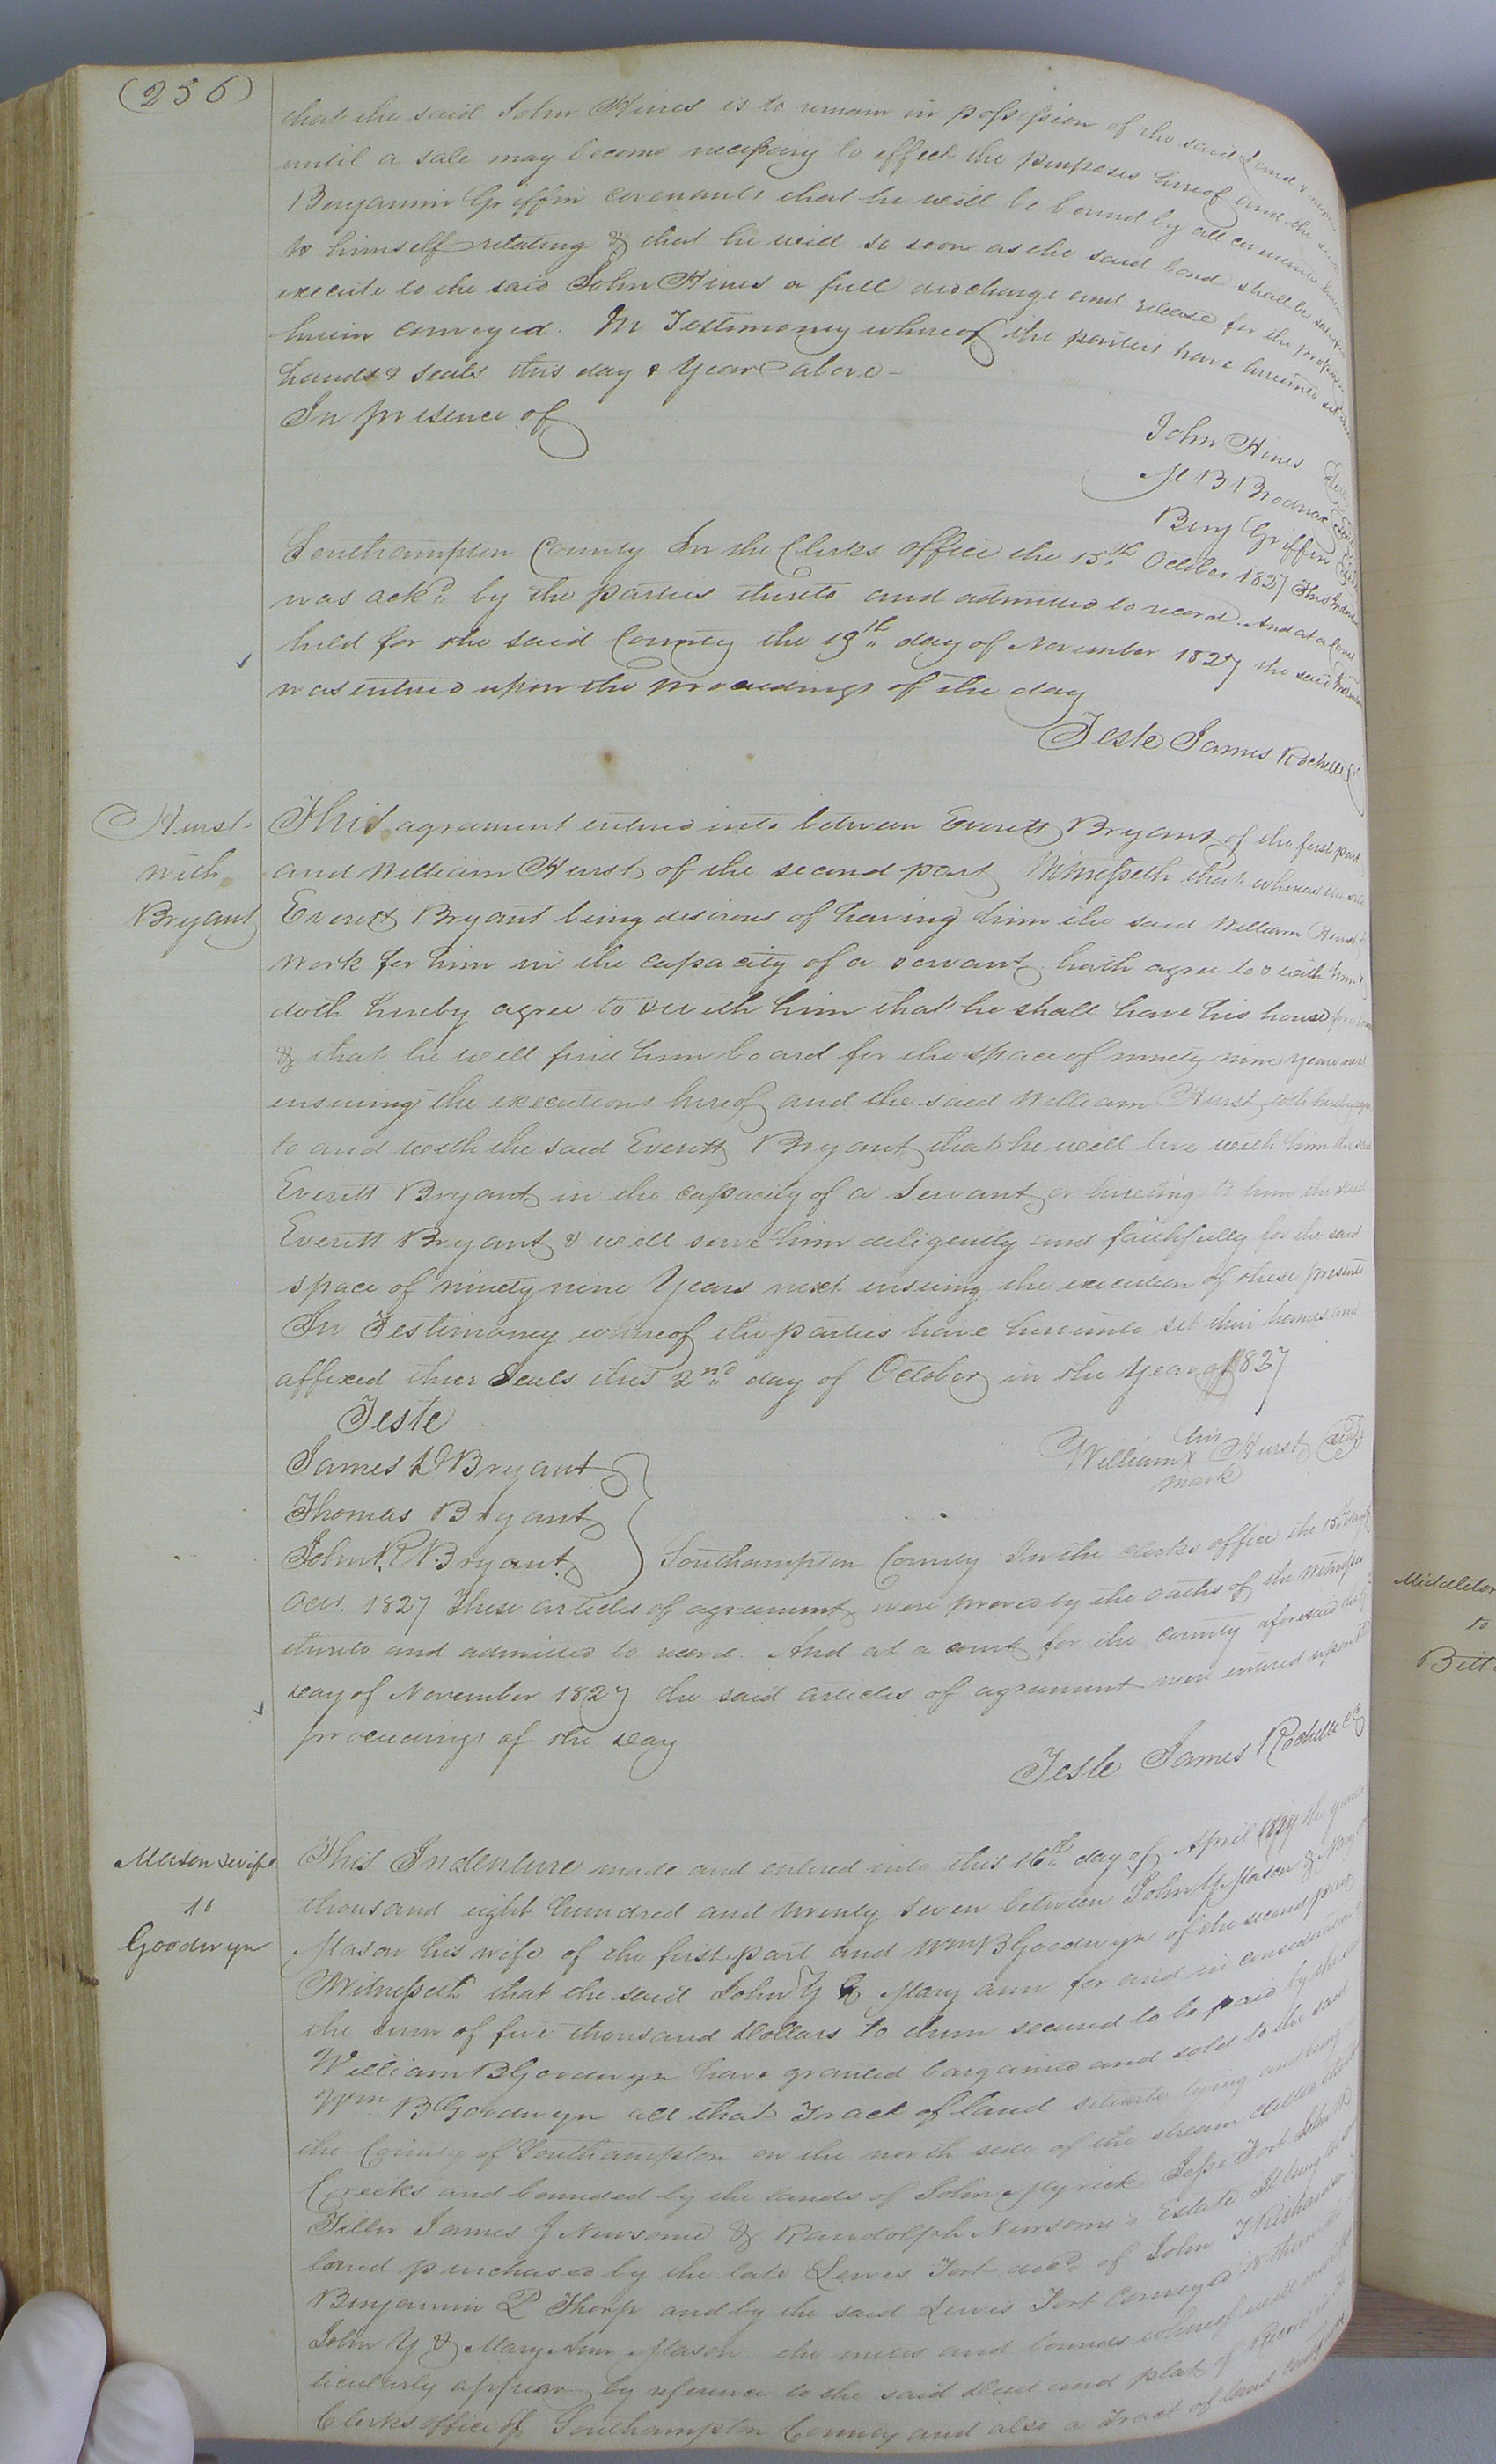 (236)
that the said John Hines is to remain in possession of the said Land &
until a sale may become necessary to effect the purposes hereof and the
Benjamin Griffin covenants that he will be bound by all covenants
to himself relating & that he will so soon as the said bond shall be
execute to the said John Hines a full discharge and release for the
herein conveyed. In Testimony whereof the parties have hereunto set
hands & seals this day & Year above
In presence of
John Hines Seal
M B Brodnax Seal
Benj Griffin Seal
Southampton County In the Clerks office the 15th October 1827 This
was ackd. by the parties thereto and admitted to record. And at a Court
held for the said County the 19th day of November 1827 the said
was entered upon the proceedings of the day
Teste James Rochelle
Hurst
with
Bryant
This agreement entered into between Everett Bryant of the first part
and William Hurst of the second part Witnesseth that whereas the said
Everett Bryant being desirous of having him the said William Hurst
work for him in the capacity of a servant hath agree to & with him &
doth hereby agree to & with him that he shall have his house for a
& that he will find him board for the space of ninety nine years next
ensuing the executions hereof and the said William Hurst doth hereby agree
to and with the said Everett Bryant that he will live with him the said
Everett Bryant in the capacity of a Servant or hireling to him the said
Everett Bryant & will serve him diligently and faithfully for the said
space of ninety nine Years next ensuing the execution of these presents
In Testimony whereof the parties have hereunto set their hands and
affixed their Seals this 2nd day of October in the Year of 1827
Teste
James D Bryant
Thomas Bryant
John R Bryant
his
William X Hurst Seal
mark
Southampton County In the clerks office the 15th day of
Octr. 1827 These articles of agreement were proved by the oaths of the witnesses
thereto and admitted to record. And at a court for the county aforesaid the
day of November 1827 the said articles of agreement were entered upon the
proceedings of the day
Teste James Rochelle CC
Mason & wife
to
Goodwyn
This Indenture made and entered into this 16th day of April 1827 the year
thousand eight hundred and twenty seven between John Y Mason & Mary
Mason his wife of the first part and Wm B Goodwyn of the second part
Witnesseth that the said John Y & Mary ann for and in consideration
the sum of five thousand Dollars to them secured to be paid by the
William B Goodwyn have granted bargained and sold to the said
Wm B Goodwyn all that Tract of land situate lying and being
the County of Southampton on the north side of the stream called
Creeks and bounded by the lands of John Myrick Jesse Fort John
Filler James J Newsome & Randolph Newsome's Estate
land purchased by the late Lewis Fort decd. of John T Richardson
Benjamin P Thorp and by the said Lewis Fort Conveyed to
John Y & Mary Ann Mason the metes and bounds whereof will
ticularly appear by reference to the said deed and plat of Record in
Clerks office of Southampton County and also a Tract of land
Middleton
to
Bitt